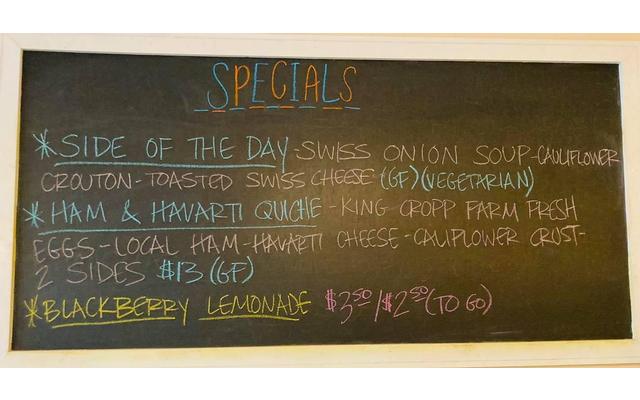 SPECIALS
*SIDE OF THE DAY-SWISS ONION SOUP-CAULIFLOWER
CROUTON-TOASTED SWISS CHEESE (GF)(VEGETARIAN)
*HAM & HAVARTI QUICHE-KING CROPP FARM FRESH
EGGS-LOCAL HAM-HAVARTI CHEESE-CALIFLOWER CRUST-
2 SIDES $13 (GF)
*BLACKBERRY LEMONADE $3.50/$2.50 (TO GO)